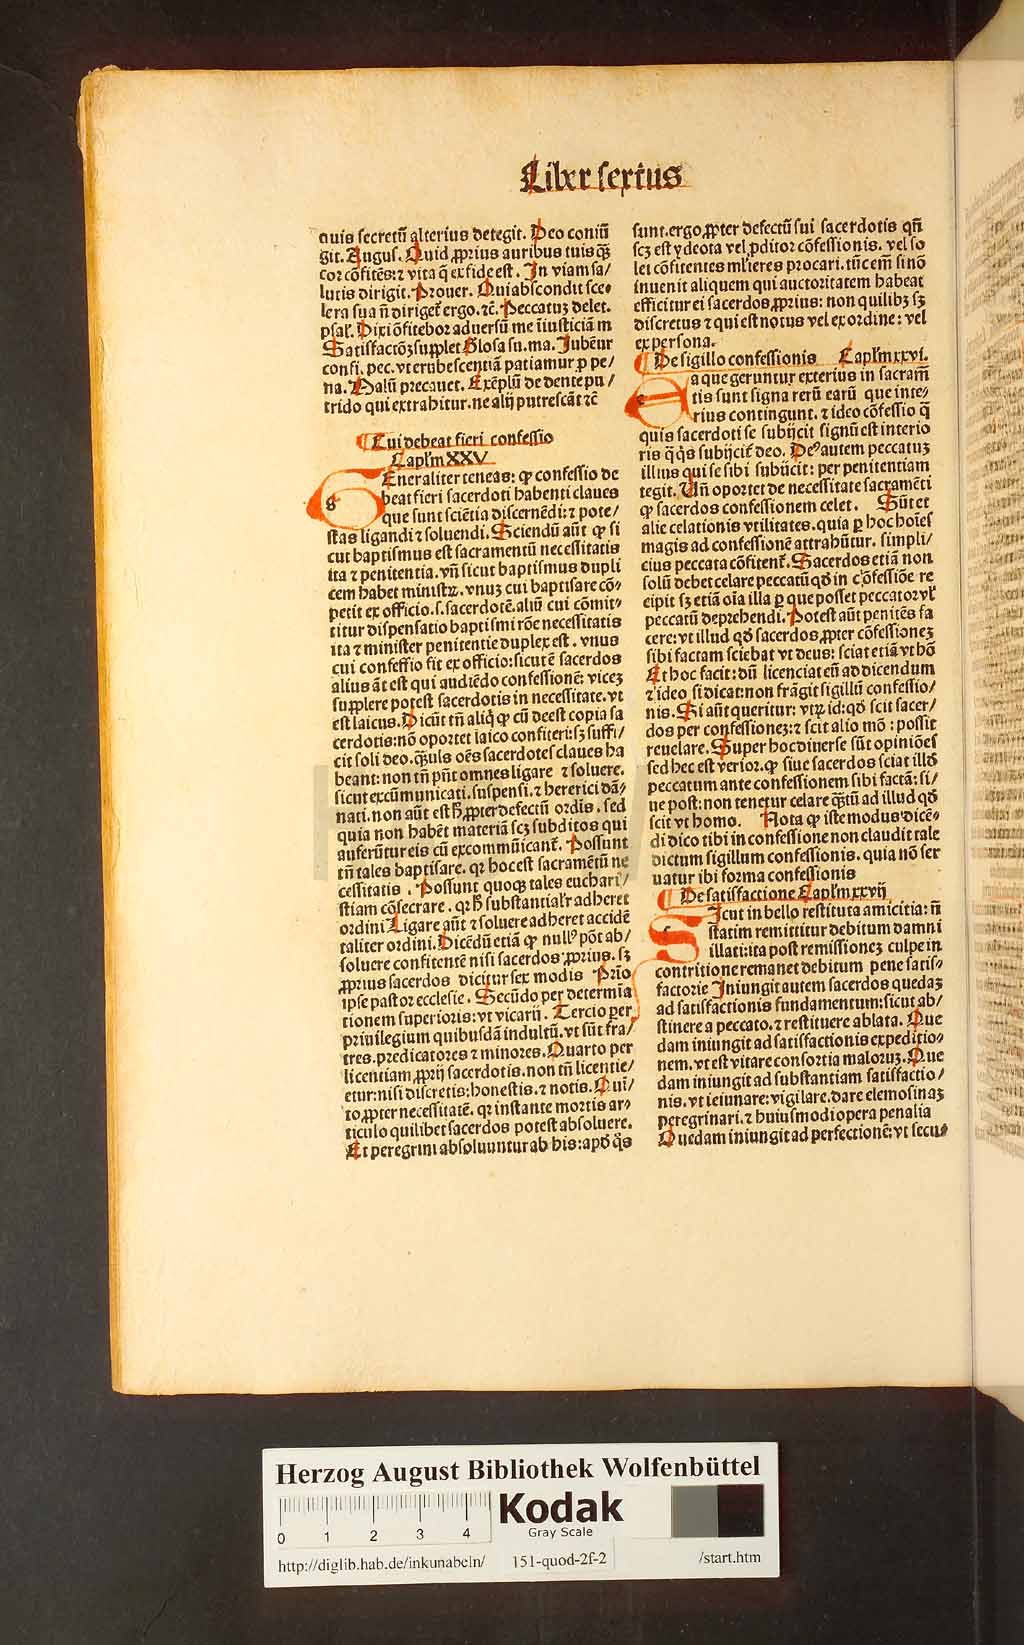 Liber sextus
quis secretū alterius detegit. Deo coniū
git. Augus. Quid ꝓprius auribus tuis qȝ
cor cōfitēs: ⁊ vita q̄ ex fide est. In viam sa/
lutis dirigit. Prouer. Qui abscondit sce⸗
lera sua n̄ diriget̄ ergo. ⁊c̄. Peccatuȝ delet.
psal̄. Dixi ōfitebor aduersū me iniusticiā m
Satisfactōȝ supplet Glosa su. ma. Iubēnr̄
confi. pec. vt erubescentiā patiamur ꝓ pe/
na. Malū precauet. Exēplū de dente pu/
trido qui extrahitur. ne alij putrescāt ⁊c̄
¶ Cui debeat fieri confessio
Caplm̄ XXV
g Eneraliter teneas: ꝙ confessio de
beat fieri sacerdoti habenti claues
que sunt sciētia discernēdi: ⁊ pote/
stas ligandi ⁊ soluendi. Sciendū aūt ꝙ si
cut baptismus est sacramentū necessitatis
ita ⁊ penitentia. vn̄ sicut baptismus dupli
cem habet ministrꝝ. vnuȝ cui baptisare cō⸗
petit ex officio. s. sacerdotē. aliū cui cōmit⸗
titur dispensatio baptismi rōe necessitatis
ita ⁊ minister penitentie duplex est. vnus
cui confessio fit ex officio: sicut ē sacerdos
alius āt est qui audiēdo confessionē: viceȝ
supplere potest sacerdotis in necessitate. vt
est laicus. Dicūt tn̄ aliq̇ ꝙ cū deest copia sa
cerdotis: nō oportet laico confiteri: sȝ suffi/
cit soli deo. qȝuis oēs sacerdotes claues ha
beant: non tn̄ pn̄t omnes ligare ⁊ soluere.
sicut excūmunicati. suspensi. ⁊ heretici dā⸗
nati. non aūt est ħ ꝓpter defectū ordīs. sed
quia non habēt materiā scȝ subditos qui
auferūtur eis cū excommūicant̄. Possunt
tn̄ tales baptisare. qꝛ hoc est sacramētū ne
cessitatis. Possunt quoqȝ tales euchari/
stiam cōsecrare. qꝛ ħ substantialr̄ adheret
ordini Ligare aūt ⁊ soluere adheret accidē
taliter ordini. Dicēdū etiā ꝙ null⁹ pōt ab/
soluere confitentē nisi sacerdos ꝓprius. sȝ
ꝓprius sacerdos dicitur sex modis Prīo
ipse pastor ecclesie. Secūdo per determīa
tionem superioris: vt vicarij. Tercio per
priuilegium quibusdā indultū. vt sūt fra/
tres. predicatores ⁊ minores. Quarto per
licentiam ꝓprij sacerdotis. non tn̄ licentie/
etur: nisi discretis: honestis. ⁊ notis. Qui/
to ꝓpter necessitatē. qꝛ instante mortis ar⸗
ticulo quilibet sacerdos potest absoluere.
Et peregrini absoluuntur ab his: apd̄ q̇s
sunt. ergo ꝓpter defectū sui sacerdotis qn̄
scȝ est ydeota vel ꝓditor cōfessionis. vel so
let cōfitentes ml̄ieres procari. tūc em̄ si nō
inuenit aliquem qui auctoritatem habeat
efficitur ei sacerdos ꝓprius: non quilibȝ sȝ
discretus ⁊ qui est notus vel ex ordine: vel
ex persona.
¶ De sigillo confessionis Caplm̄ xxvi.
e a que geruntur exterius in sacram̄
tis sunt signa rerū earū que inte⸗
rius contingunt. ⁊ ideo cōfessio q̄
quis sacerdoti se subijcit signū est interio
ris q̄ q̇s subijcit̄ deo. De⁹ autem peccatuȝ
illius qui se sibi subijcit: per penitentiam
tegit. Vn̄ oportet de necessitate sacramēti
ꝙ sacerdos confessionem celet. Sūt et
alie celationis vtilitates. quia ꝑ hoc hoīes
magis ad confessionē attrahūtur. simpli/
cius peccata cōfitent̄. Sacerdos etiā non
solū debet celare peccatū qd̄ in cōfessiōe re
cipit sȝ etiā oīa illa ꝑ que posset peccator vl̄
peccatū deprehendi. Potest aūt penitēs fa
cere: vt illud qd̄ sacerdos ꝓpter cōfessioneȝ
sibi factam sciebat vt deus: sciat etiā vt hō
Et hoc facit: dū licenciat eū ad dicendum
⁊ ideo si dicat: non frāgit sigillū confessio/
nis. Si aūt queritur: vtꝝ id: qd̄ scit sacer/
dos per confessioneȝ: ⁊ scit alio mō: possit
reuelare. Super hoc diuerse sūt opiniões
sed hec est verior. ꝙ siue sacerdos sciat illd̄
peccatum ante confessionem sibi factā: si/
ue post: non tenetur celare qȝtū ad illud qd̄
scit vt homo. Nota ꝙ iste modus dicē⸗
di dico tibi in confessione non claudit tale
dictum sigillum confessionis. quia nō ser
uatur ibi forma confessionis
¶ De satisfactione Caplm̄ xxvij
s Icut in bello restituta amicitia: n̄
statim remittitur debitum damni
illati: ita post remissioneȝ culpe in
contritione remanet debitum pene satis⸗
factorie Iniungit autem sacerdos quedaȝ
ad satisfactionis fundamentum: sicut ab/
stinere a peccato. ⁊ restituere ablata. Que
dam iniungit ad satisfactionis expeditio⸗
nem. vt est vitare consortia maloruȝ. Que
dam iniungit ad substantiam satisfactio/
nis. vt ieiunare: vigilare. dare elemosinaȝ
peregrinari. ⁊ huiusmodi opera penalia
Quedam iniungit ad perfectionē: vt secu⸗
Herzog August Bibliothek Wolfenbüttel
Kodak
Gray Scale
0 1 2 3 4
http://diglib.hab.de/inkunabeln/ 151-quod-2f-2 /start.htm